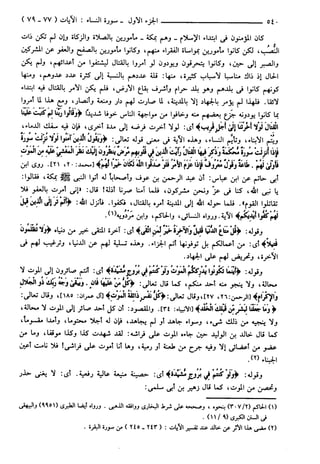 ٥٤٠ الجزء الأول - سورة النساء: الآيات (٧٧ - ٧٩)
كان المؤمنون في ابتداء الإسلام - وهم بمكة - مأمورين بالصلاة والزكاة وإن لم تكن ذات
النُّصُب، لكن كانوا مأمورين بمواساة الفقراء منهم، وكانوا مأمورين بالصفح والعفو عن المشركين
والصبر إلى حين، وكانوا يتحرقون ويودون لو أمروا بالقتال ليشتفوا من أعدائهم، ولم يكن
الحال إذ ذاك مناسبا لأسباب كثيرة، منها: قلة عددهم بالنسبة إلى كثرة عدد عدوهم، ومنها
كونهم كانوا في بلدهم وهو بلد حرام وأشرف بقاع الأرض، فلم يكن الأمر بالقتال فيه ابتداء
لائقا. فلهذا لم يؤمر بالجهاد إلا بالمدينة، لما صارت لهم دار ومنعة وأنصار، ومع هذا لما أمروا
بما كانوا يودونه جزع بعضهم منه وخافوا من مواجهة الناس خوفا شديدا ﴿وَقَالُوا رَبَّنَا لِمَ كَتَبْتَ عَلَيْنَا
الْقِتَالَ لَوْلَا أَخَّرْتَنَا إِلَىٰ أَجَلٍ قَرِيبٍ﴾ أي: لولا أخرت فرضه إلى مدة أخرى، فإن فيه سفك الدماء،
ويُتْم الأبناء، وتأيّم النساء، وهذه الآية في معنى قوله تعالى: ﴿وَيَقُولُ الَّذِينَ آمَنُوا لَوْلَا نُزِّلَتْ سُورَةٌ
فَإِذَا أُنزِلَتْ سُورَةٌ مُّحْكَمَةٌ وَذُكِرَ فِيهَا الْقِتَالُ رَأَيْتَ الَّذِينَ فِي قُلُوبِهِم مَّرَضٌ يَنظُرُونَ إِلَيْكَ نَظَرَ الْمَغْشِيِّ عَلَيْهِ مِنَ الْمَوْتِ
فَأَوْلَىٰ لَهُمْ . طَاعَةٌ وَقَوْلٌ مَّعْرُوفٌ فَإِذَا عَزَمَ الْأَمْرُ فَلَوْ صَدَقُوا اللَّهَ لَكَانَ خَيْرًا لَّهُمْ﴾ [محمد: ٢٠، ٢١]. روى ابن
أبي حاتم عن ابن عباس: أن عبد الرحمن بن عوف وأصحاباً له أتوا النبي ﷺ بمكة، فقالوا:
يا نبي الله، كنا في عزّ ونحن مشركون، فلما آمنا صرنا أذلة! قال: «إني أمرت بالعفو فلا
تقاتلوا القوم». فلما حوله الله إلى المدينة أمره بالقتال، فكفوا. فأنزل الله: ﴿أَلَمْ تَرَ إِلَى الَّذِينَ قِيلَ
لَهُمْ كُفُّوا أَيْدِيَكُمْ﴾ الآية. ورواه النسائي، والحاكم، وابن مَرْدُويه(١).
وقوله: ﴿قُلْ مَتَاعُ الدُّنْيَا قَلِيلٌ وَالْآخِرَةُ خَيْرٌ لِّمَنِ اتَّقَىٰ﴾ أي: آخرة المتقي خير من دنياه ﴿وَلَا تُظْلَمُونَ
فَتِيلًا﴾ أي: من أعمالكم بل توفونها أتم الجزاء. وهذه تسلية لهم عن الدنيا، وترغيب لهم في
الآخرة، وتحريض لهم على الجهاد.
وقوله: ﴿أَيْنَمَا تَكُونُوا يُدْرِككُّمُ الْمَوْتُ وَلَوْ كُنتُمْ فِي بُرُوجٍ مُّشَيَّدَةٍ﴾ أي: أنتم صائرون إلى الموت لا
محالة، ولا ينجو منه أحد منكم، كما قال تعالى: ﴿كُلُّ مَنْ عَلَيْهَا فَانٍ . وَيَبْقَىٰ وَجْهُ رَبِّكَ ذُو الْجَلَالِ
وَالْإِكْرَامِ﴾ [الرحمن: ٢٦، ٢٧]، وقال تعالى: ﴿كُلُّ نَفْسٍ ذَائِقَةُ الْمَوْتِ﴾ [آل عمران: ١٨٥]، وقال تعالى:
﴿وَمَا جَعَلْنَا لِبَشَرٍ مِّن قَبْلِكَ الْخُلْدَ﴾ [الأنبياء: ٣٤]. والمقصود: أن كل أحد صائر إلى الموت لا محالة،
ولا ينجيه من ذلك شيء، وسواء جاهد أو لم يجاهد، فإن له أجلا محتوما، وأمدا مقسوما،
كما قال خالد بن الوليد حين جاءه الموت على فراشه: لقد شهدت كذا وكذا موقفا، وما من
عضو من أعضائي إلا وفيه جرح من طعنة أو رمية، وها أنا أموت على فراشي! فلا نامت أعين
الجبناء(٢).
وقوله: ﴿وَلَوْ كُنتُمْ فِي بُرُوجٍ مُّشَيَّدَةٍ﴾ أي: حصينة منيعة عالية رفيعة. أي: لا يغني حذر
وتحصن من الموت، كما قال زهير بن أبي سلمى:
(١) الحاكم (٣٠٧/٢) بنحوه، وصححه على شرط البخاري ووافقه الذهبي. ورواه أيضا الطبري (٩٩٥١) والبيهقي
في السنن الكبرى (٩/ ١١).
(٢) مضى هذا الأثر عن خالد عند تفسير الآيات: (٢٤٣ - ٢٤٥) من سورة البقرة.